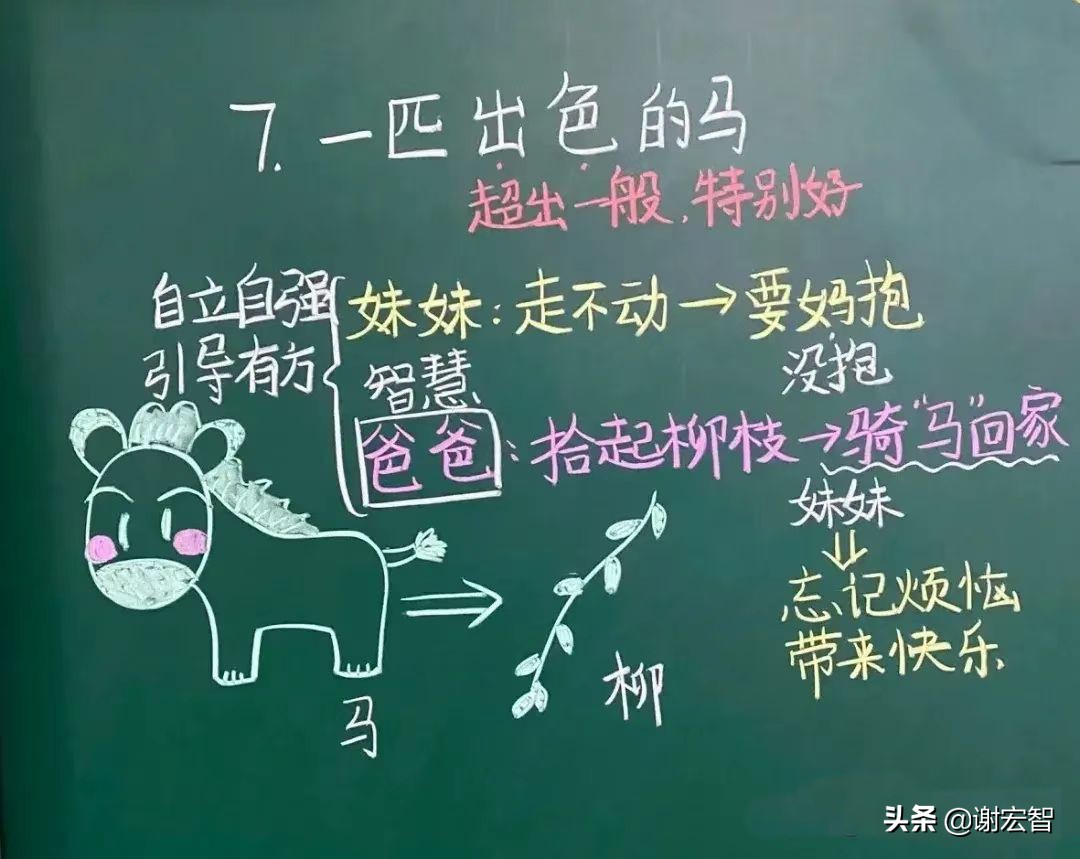 7. 一匹出色的马
超出一般,特别好
自立自强
引导有方
妹妹:走不动→要妈抱
没抱
智慧
爸爸:拾起柳枝→骑“马”回家
妹妹
忘记烦恼
带来快乐
马
柳
头条 @谢宏智